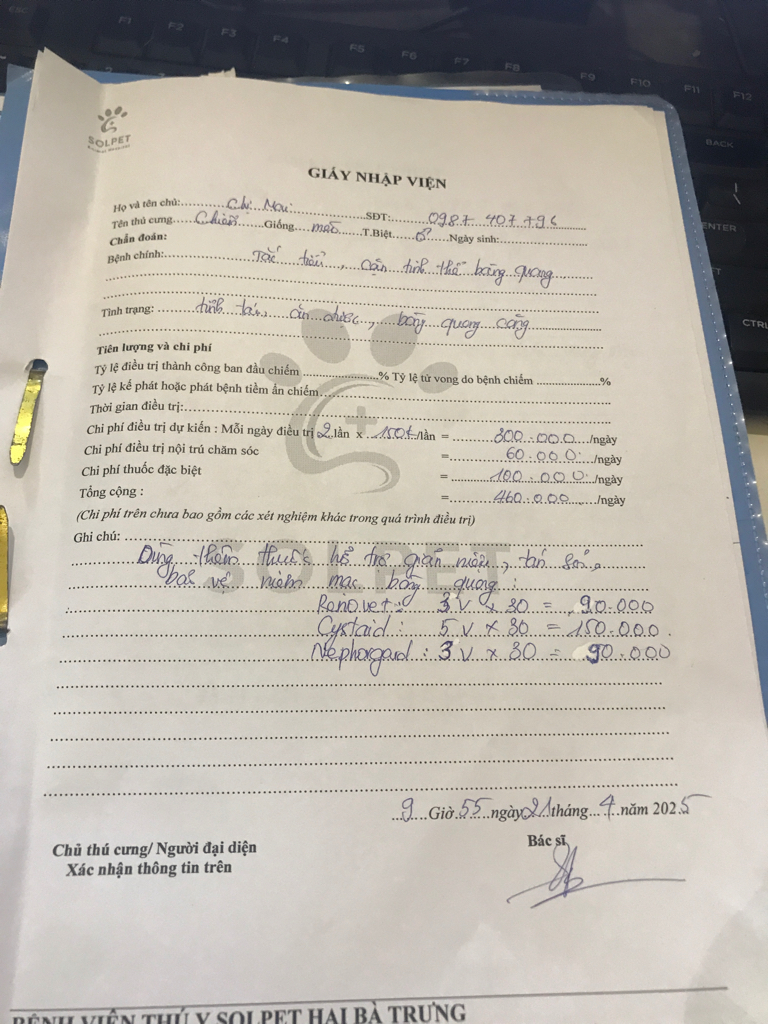 SOLPET
GIẤY NHẬP VIỆN
Họ và tên chủ: Chị Mai SĐT: 0987 407 796
Tên thú cưng Giống mèo T.Biệt ♂ Ngày sinh:
Chẩn đoán:
Bệnh chính: Tắc tiểu, cặn tinh thể bàng quang
Tình trạng: tỉnh táo, ăn được, bàng quang căng
Tiên lượng và chi phí
Tỷ lệ điều trị thành công ban đầu chiếm % Tỷ lệ tử vong do bệnh chiếm %
Tỷ lệ kế phát hoặc phát bệnh tiềm ẩn chiếm
Thời gian điều trị:
Chi phí điều trị dự kiến : Mỗi ngày điều trị 2 lần x 150k/lần = 300.000/ngày
Chi phí điều trị nội trú chăm sóc = 60.000/ngày
Chi phí thuốc đặc biệt = 100.000/ngày
Tổng cộng : = 460.000/ngày
(Chi phí trên chưa bao gồm các xét nghiệm khác trong quá trình điều trị)
Ghi chú:
Dùng thêm thuốc hỗ trợ giãn niệu, tán sỏi,
bảo vệ niêm mạc bàng quang:
Renovet: 3 v x 30 = 90.000
Cystaid: 5 v x 30 = 150.000
Nephorgard: 3 v x 30 = 90.000
9 Giờ 55 ngày 21 tháng 4 năm 2025
Chủ thú cưng/ Người đại diện
Bác sĩ
Xác nhận thông tin trên
BỆNH VIỆN THÚ Y SOLPET HAI BÀ TRƯNG